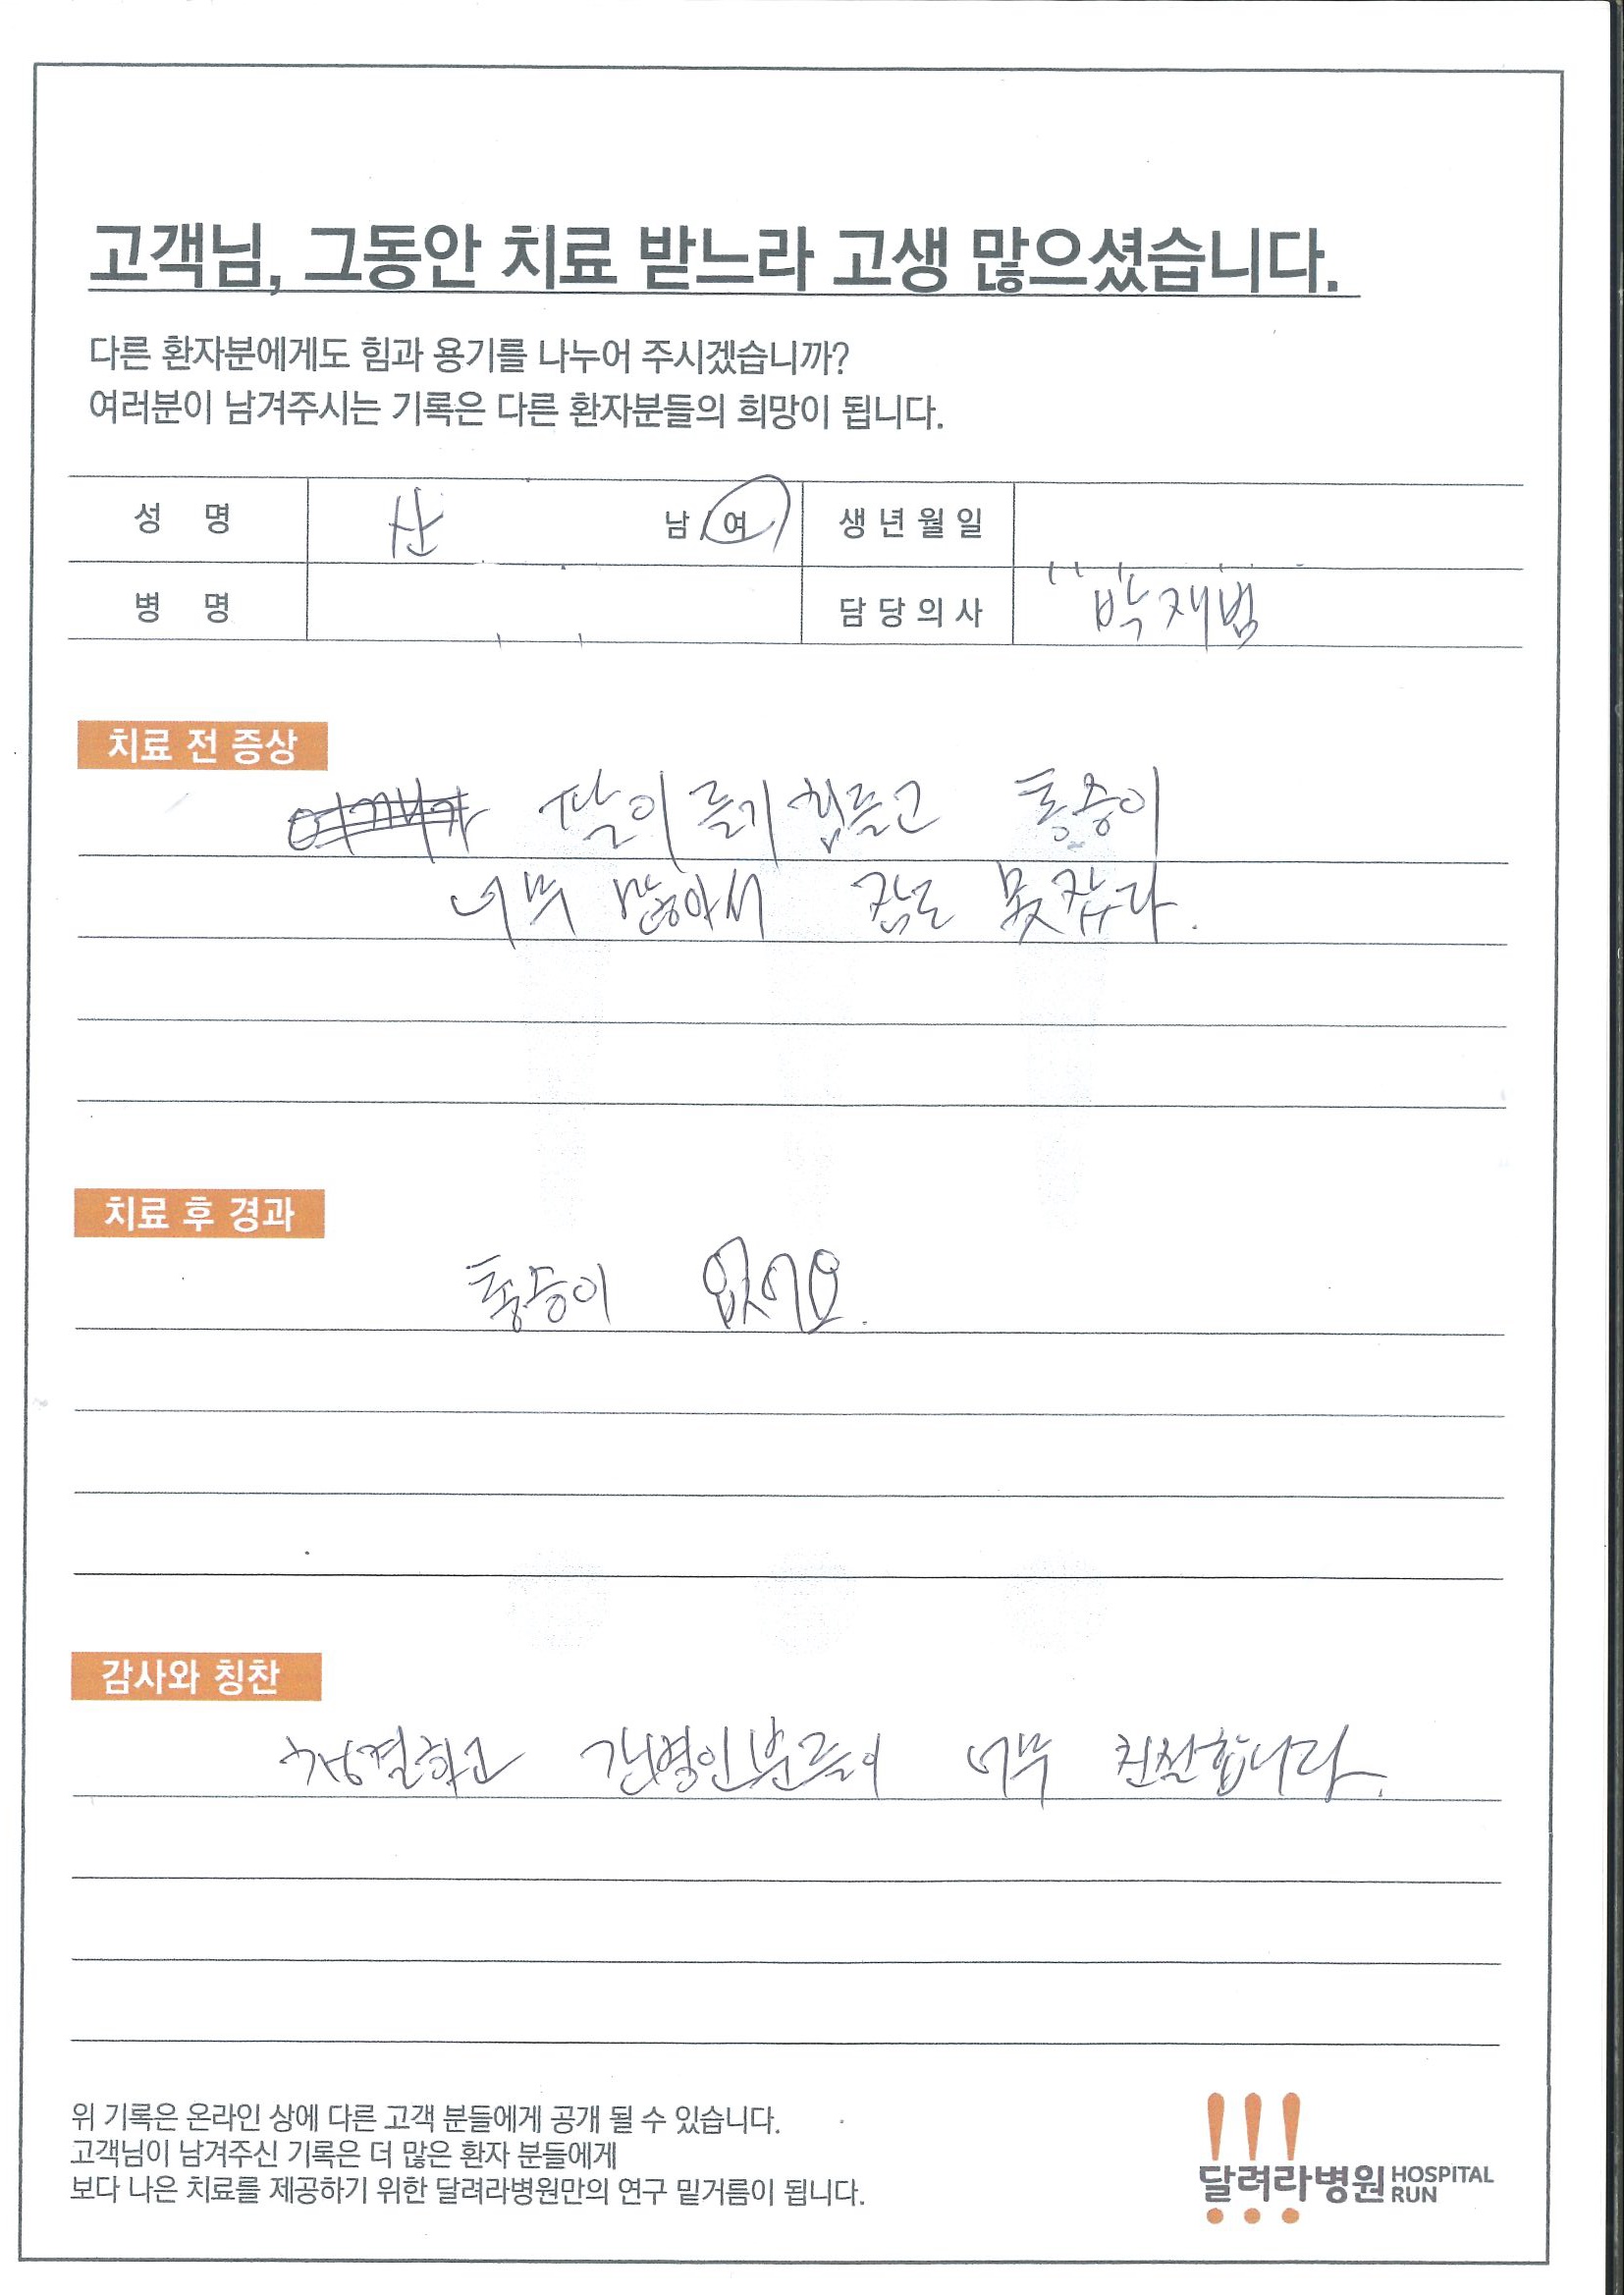 고객님, 그동안 치료 받느라 고생 많으셨습니다.
다른 환자분에게도 힘과 용기를 나누어 주시겠습니까?
여러분이 남겨주시는 기록은 다른 환자분들의 희망이 됩니다.
성 명 산 남/여 생년월일
병 명 담당의사 박재범
치료 전 증상
팔이 들기 힘들고 통증이
너무 많아서 잠도 못잤다.
치료 후 경과
통증이 없어요.
감사와 칭찬
청결하고 간병인분들이 너무 친절합니다.
위 기록은 온라인 상에 다른 고객 분들에게 공개 될 수 있습니다.
고객님이 남겨주신 기록은 더 많은 환자 분들에게
보다 나은 치료를 제공하기 위한 달려라병원만의 연구 밑거름이 됩니다.
달려라병원 HOSPITAL RUN